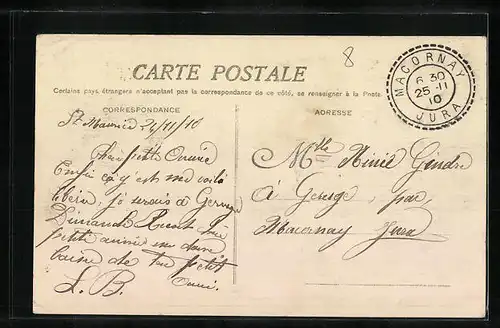 8
CARTE POSTALE
Certains pays étrangers n'acceptant pas la correspondance de ce côté, se renseigner à la Poste
CORRESPONDANCE
ADRESSE
MACORNAY
6 30
25 - 11
10
JURA
St Maurice 24/11/10
petite
Enfin ça y est me voilà
libéré, je serais à
Dimanche
petite amie
baise de ton petit
ami.
L. B.
Mlle Gindre
à Geruge, par
Macornay Jura